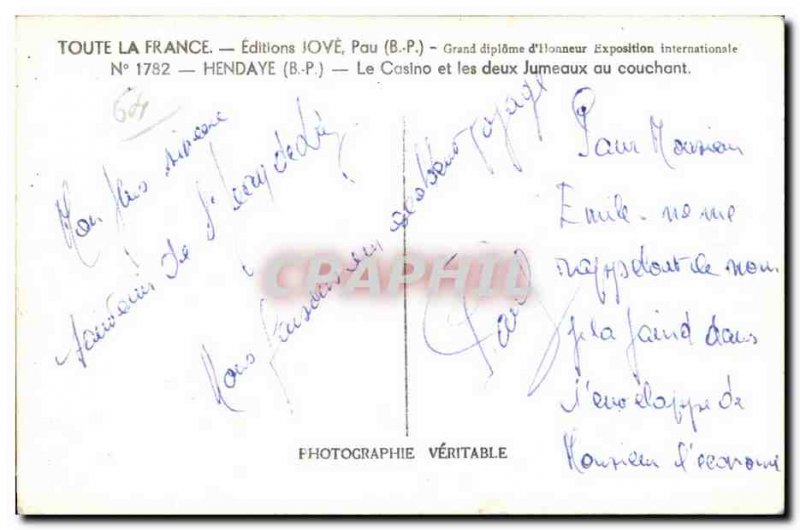 TOUTE LA FRANCE. — Éditions JOVÉ, Pau (B.-P.) - Grand diplôme d'Honneur Exposition internationale
N° 1782 — HENDAYE (B.-P.) — Le Casino et les deux Jumeaux au couchant.
64
Mon plus sincère
souvenir de St Jean de Luz
Nous faisons un excellent voyage
Paul
CPAPHIL
Pour Monsieur
Emile - ne me
rappelant de nom
je la joind dans
l'enveloppe de
Monsieur l'econome
PHOTOGRAPHIE VÉRITABLE